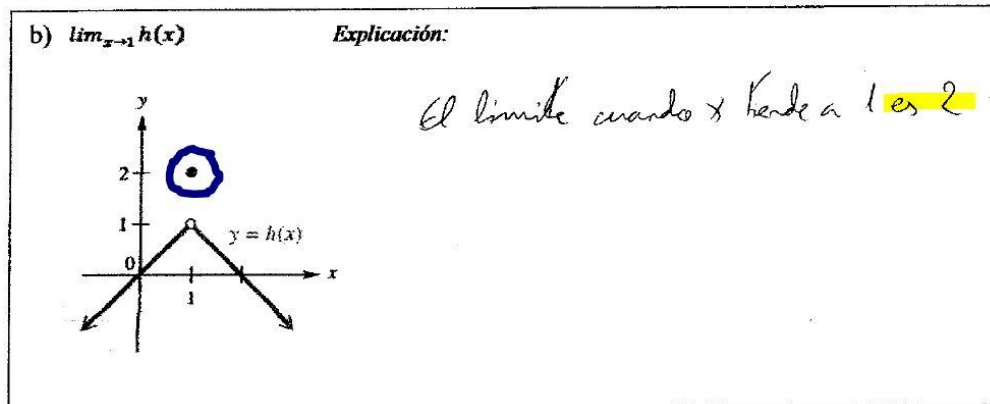 b) lim x→1 h(x)
Explicación:
El limite cuando x tiende a 1 es 2
y
2
1
y = h(x)
0
x
1